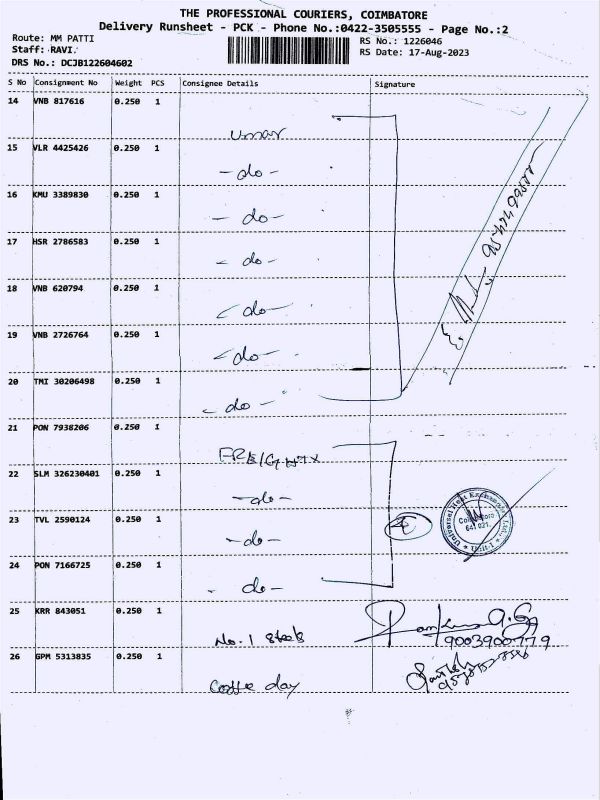 THE PROFESSIONAL COURIERS, COIMBATORE
Delivery Runsheet - PCK - Phone No.:0422-3505555 - Page No.:2
Route: MM PATTI
RS No.: 1226046
Staff: RAVI.
RS Date: 17-Aug-2023
DRS No.: DCJB122604602
S No Consignment No Weight PCS Consignee Details Signature
14 VNB 817616 0.250 1
Umar
15 VLR 4425426 0.250 1
- do -
16 KMU 3389830 0.250 1
- do -
17 HSR 2786583 0.250 1
- do -
18 VNB 620794 0.250 1
- do -
19 VNB 2726764 0.250 1
- do -
20 TMI 30206498 0.250 1
- do -
21 PON 7938206 0.250 1
22 SLM 326230401 0.250 1
- do -
23 TVL 2590124 0.250 1
- do -
Universal Heat Exchangers
Coimbatore
641 021
24 PON 7166725 0.250 1
- do -
25 KRR 843051 0.250 1
No. 1
9003900779
26 GPM 5313835 0.250 1
Coffee day